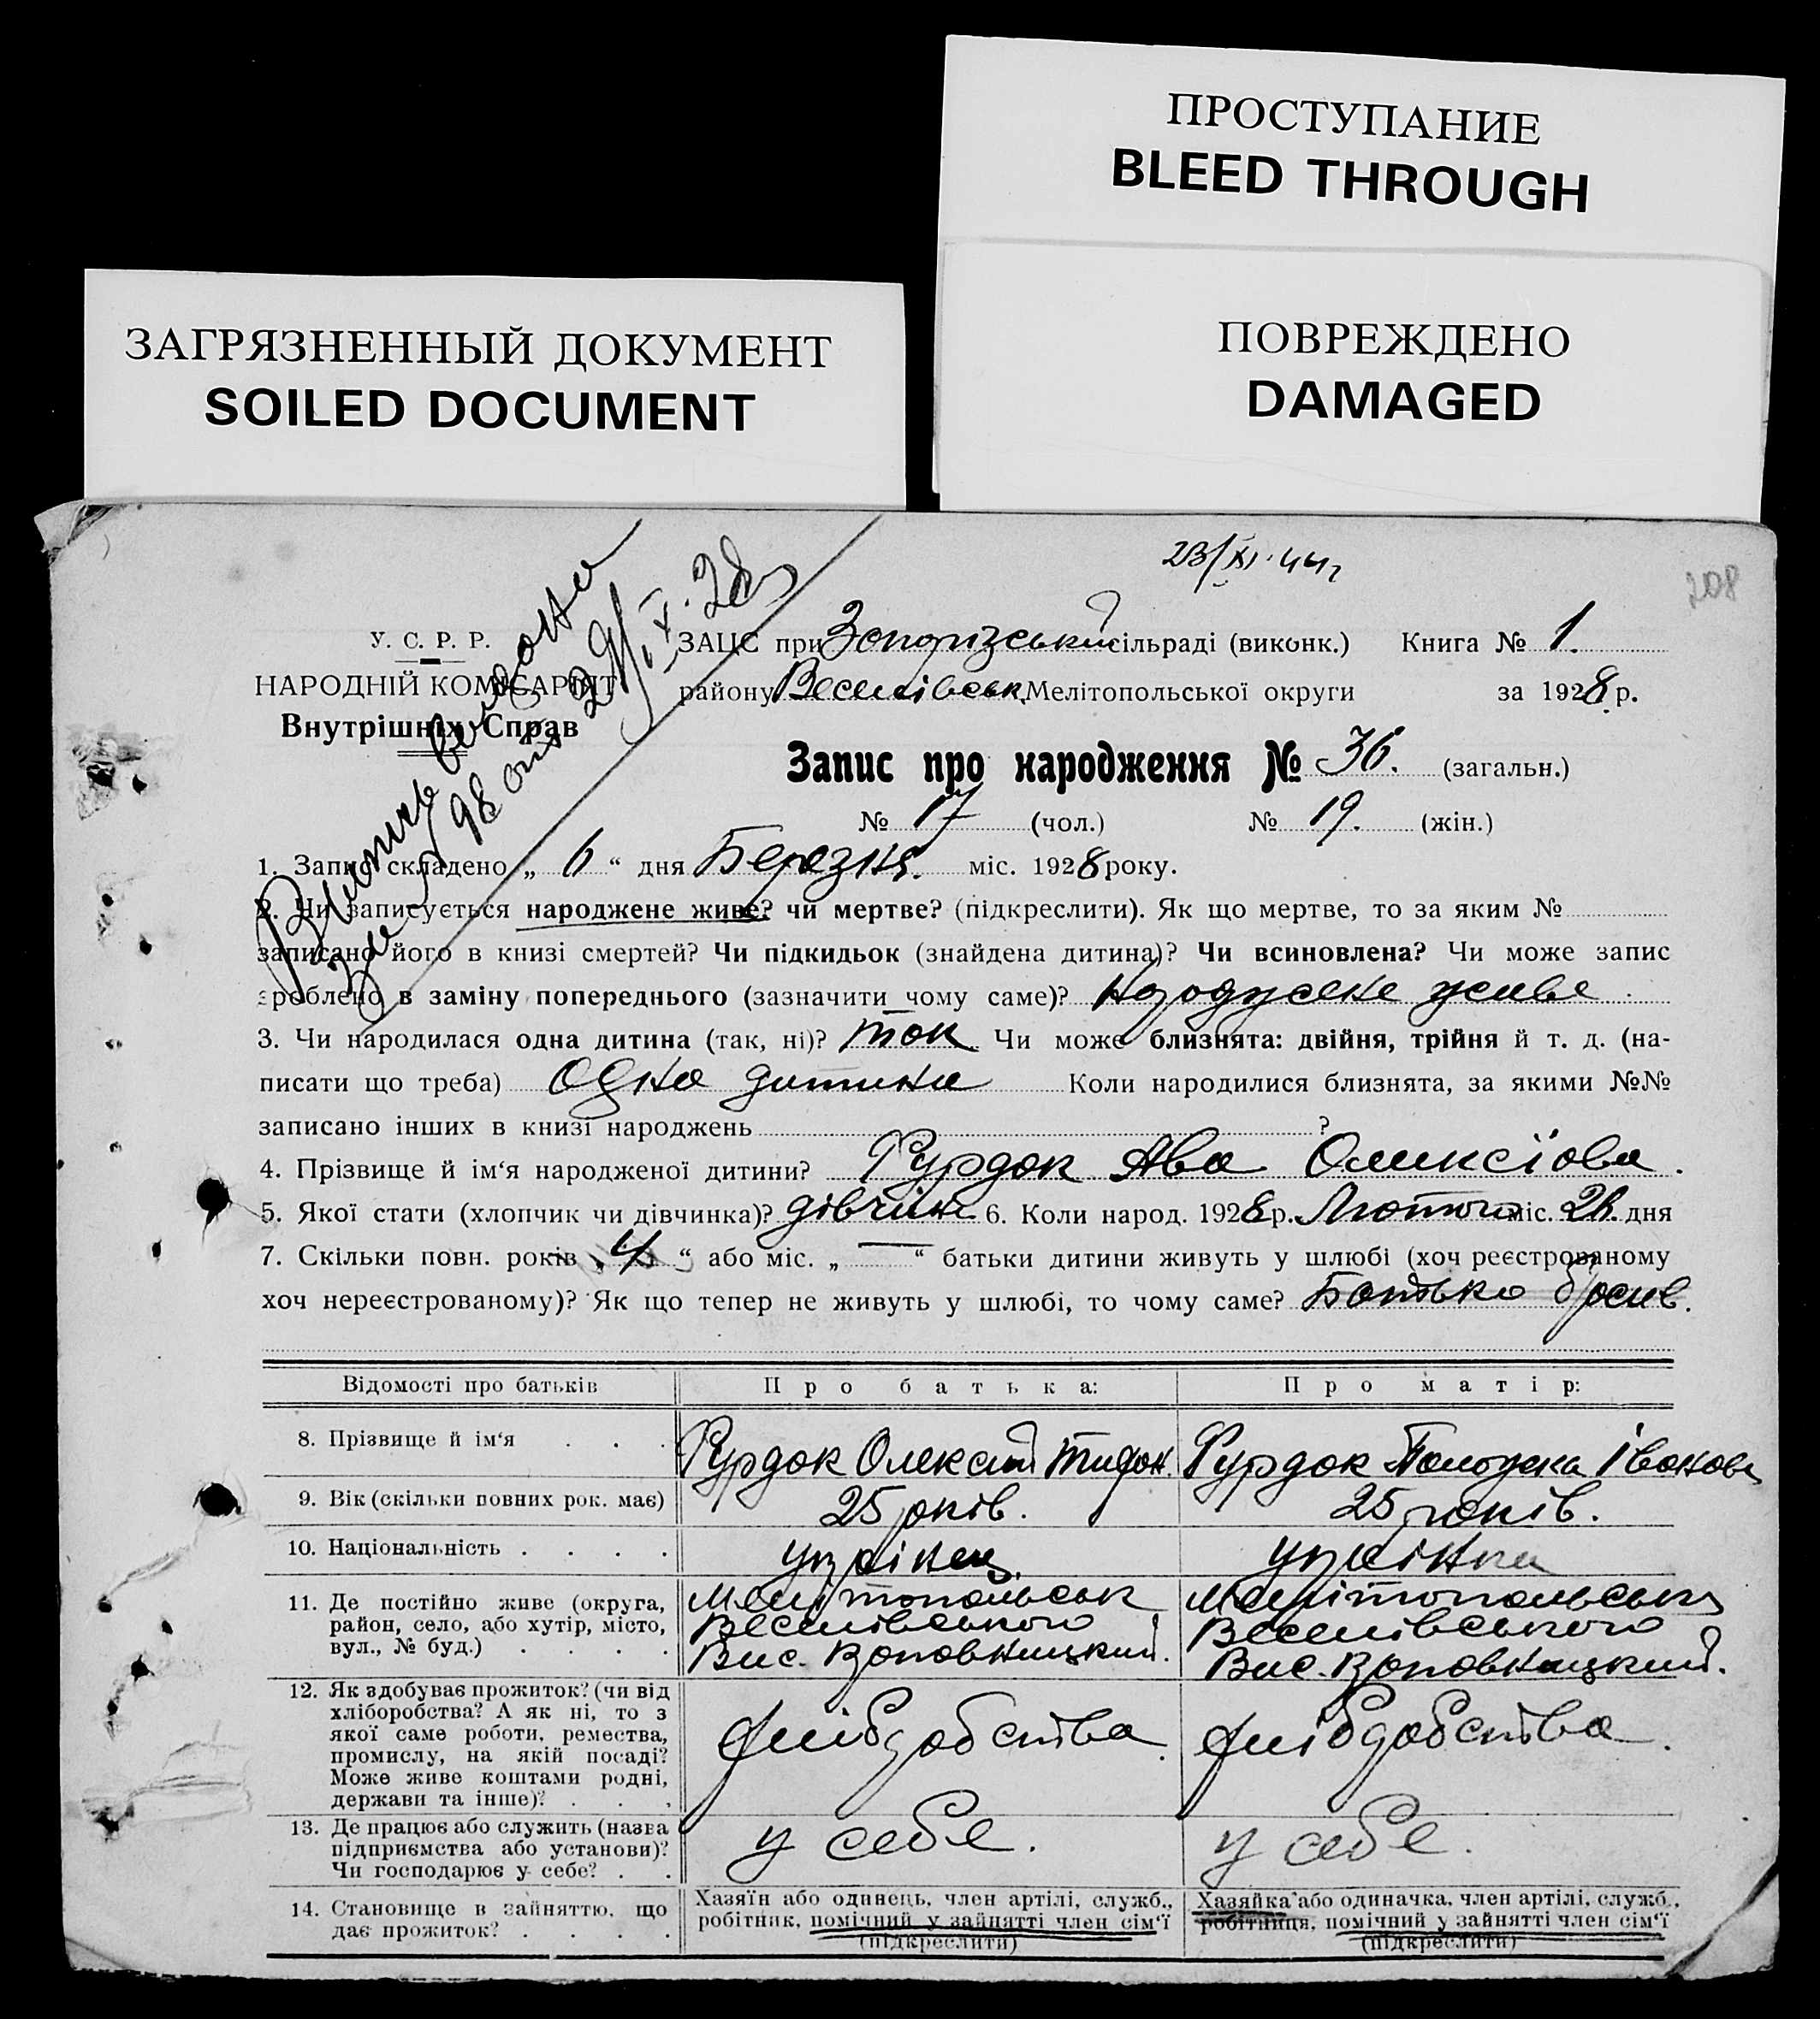 ПРОСТУПАНИЕ
BLEED THROUGH
ПОВРЕЖДЕНО
DAMAGED
ЗАГРЯЗНЕННЫЙ ДОКУМЕНТ
SOILED DOCUMENT
23/XI.44г
208
Виписъ видана
за № 98 от 29/X.28
У. С. Р. Р.
НАРОДНІЙ КОМІСАРІЯТ
Внутрішніх Справ
ЗАЦС при Запорізській сільраді (виконк.) Книга № 1.
району Веселівськ. Мелітопольської округи за 1928 р.
Запис про народження № 36. (загальн.)
№ 17 (чол.) № 19. (жін.)
1. Запис складено „ 6 “ дня Березня. міс. 1928 року.
2. Чи записується народжене живе? чи мертве? (підкреслити). Як що мертве, то за яким №
записано його в книзі смертей? Чи підкидьок (знайдена дитина)? Чи всиновлена? Чи може запис
зроблено в заміну попереднього (зазначити чому саме)? живе
3. Чи народилася одна дитина (так, ні)? так Чи може близнята: двійня, трійня й т. д. (на-
писати що треба) Одна дитина Коли народилися близнята, за якими №№
записано інших в книзі народжень ?
4. Прізвище й ім‘я народженої дитини? Фурдак Ява Оликсїова.
5. Якої стати (хлопчик чи дівчинка)? дівчина 6. Коли народ. 1928 р. Лютого міс. 28. дня
7. Скільки повн. років „ 4 “ або міс. „ — “ батьки дитини живуть у шлюбі (хоч реєстрованому
хоч нереєстрованому)? Як що тепер не живуть у шлюбі, то чому саме? Батько бросив.
Відомості про батьків Про батька: Про матір:
8. Прізвище й ім‘я . . . Фурдак Олексій Тидон. Фурдак Іванова
9. Вік (скільки повних рок. має) 25 років. 25 років.
10. Національність . . . . українец. українка
11. Де постійно живе (округа,
район, село, або хутір, місто,
вул., № буд.) . . . .
Мелітопольськ
Веселівського
Вис. Заповницкий.
Мелітопольськ
Веселівського
Вис. Заповницкий.
12. Як здобував прожиток? (чи від
хліборобства? А як ні, то з
якої саме роботи, ремества,
промислу, на якій посаді?
Може живе коштами родні,
держави та інше)? . . .
хлібдобства. хлібдобства.
13. Де працює або служить (назва
підприємства або установи)?
Чи господарює у себе? . .
у себе. у себе.
14. Становище в зайняттю, що
дає прожиток? . . . .
Хазяїн або одинець, член артілі, служб.,
робітник, помічний у зайнятті член сім‘ї
(підкреслити)
Хазяйка або одиначка, член артілі, служб.,
робітниця, помічний у зайнятті член сім‘ї
(підкреслити)